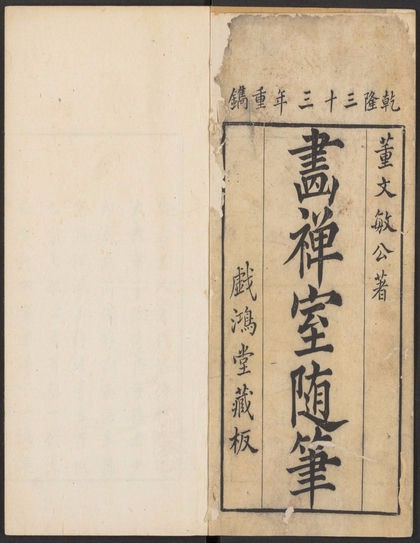 乾隆三十三年重鐫
董文敏公著
畵禪室随筆
戯鴻堂藏板